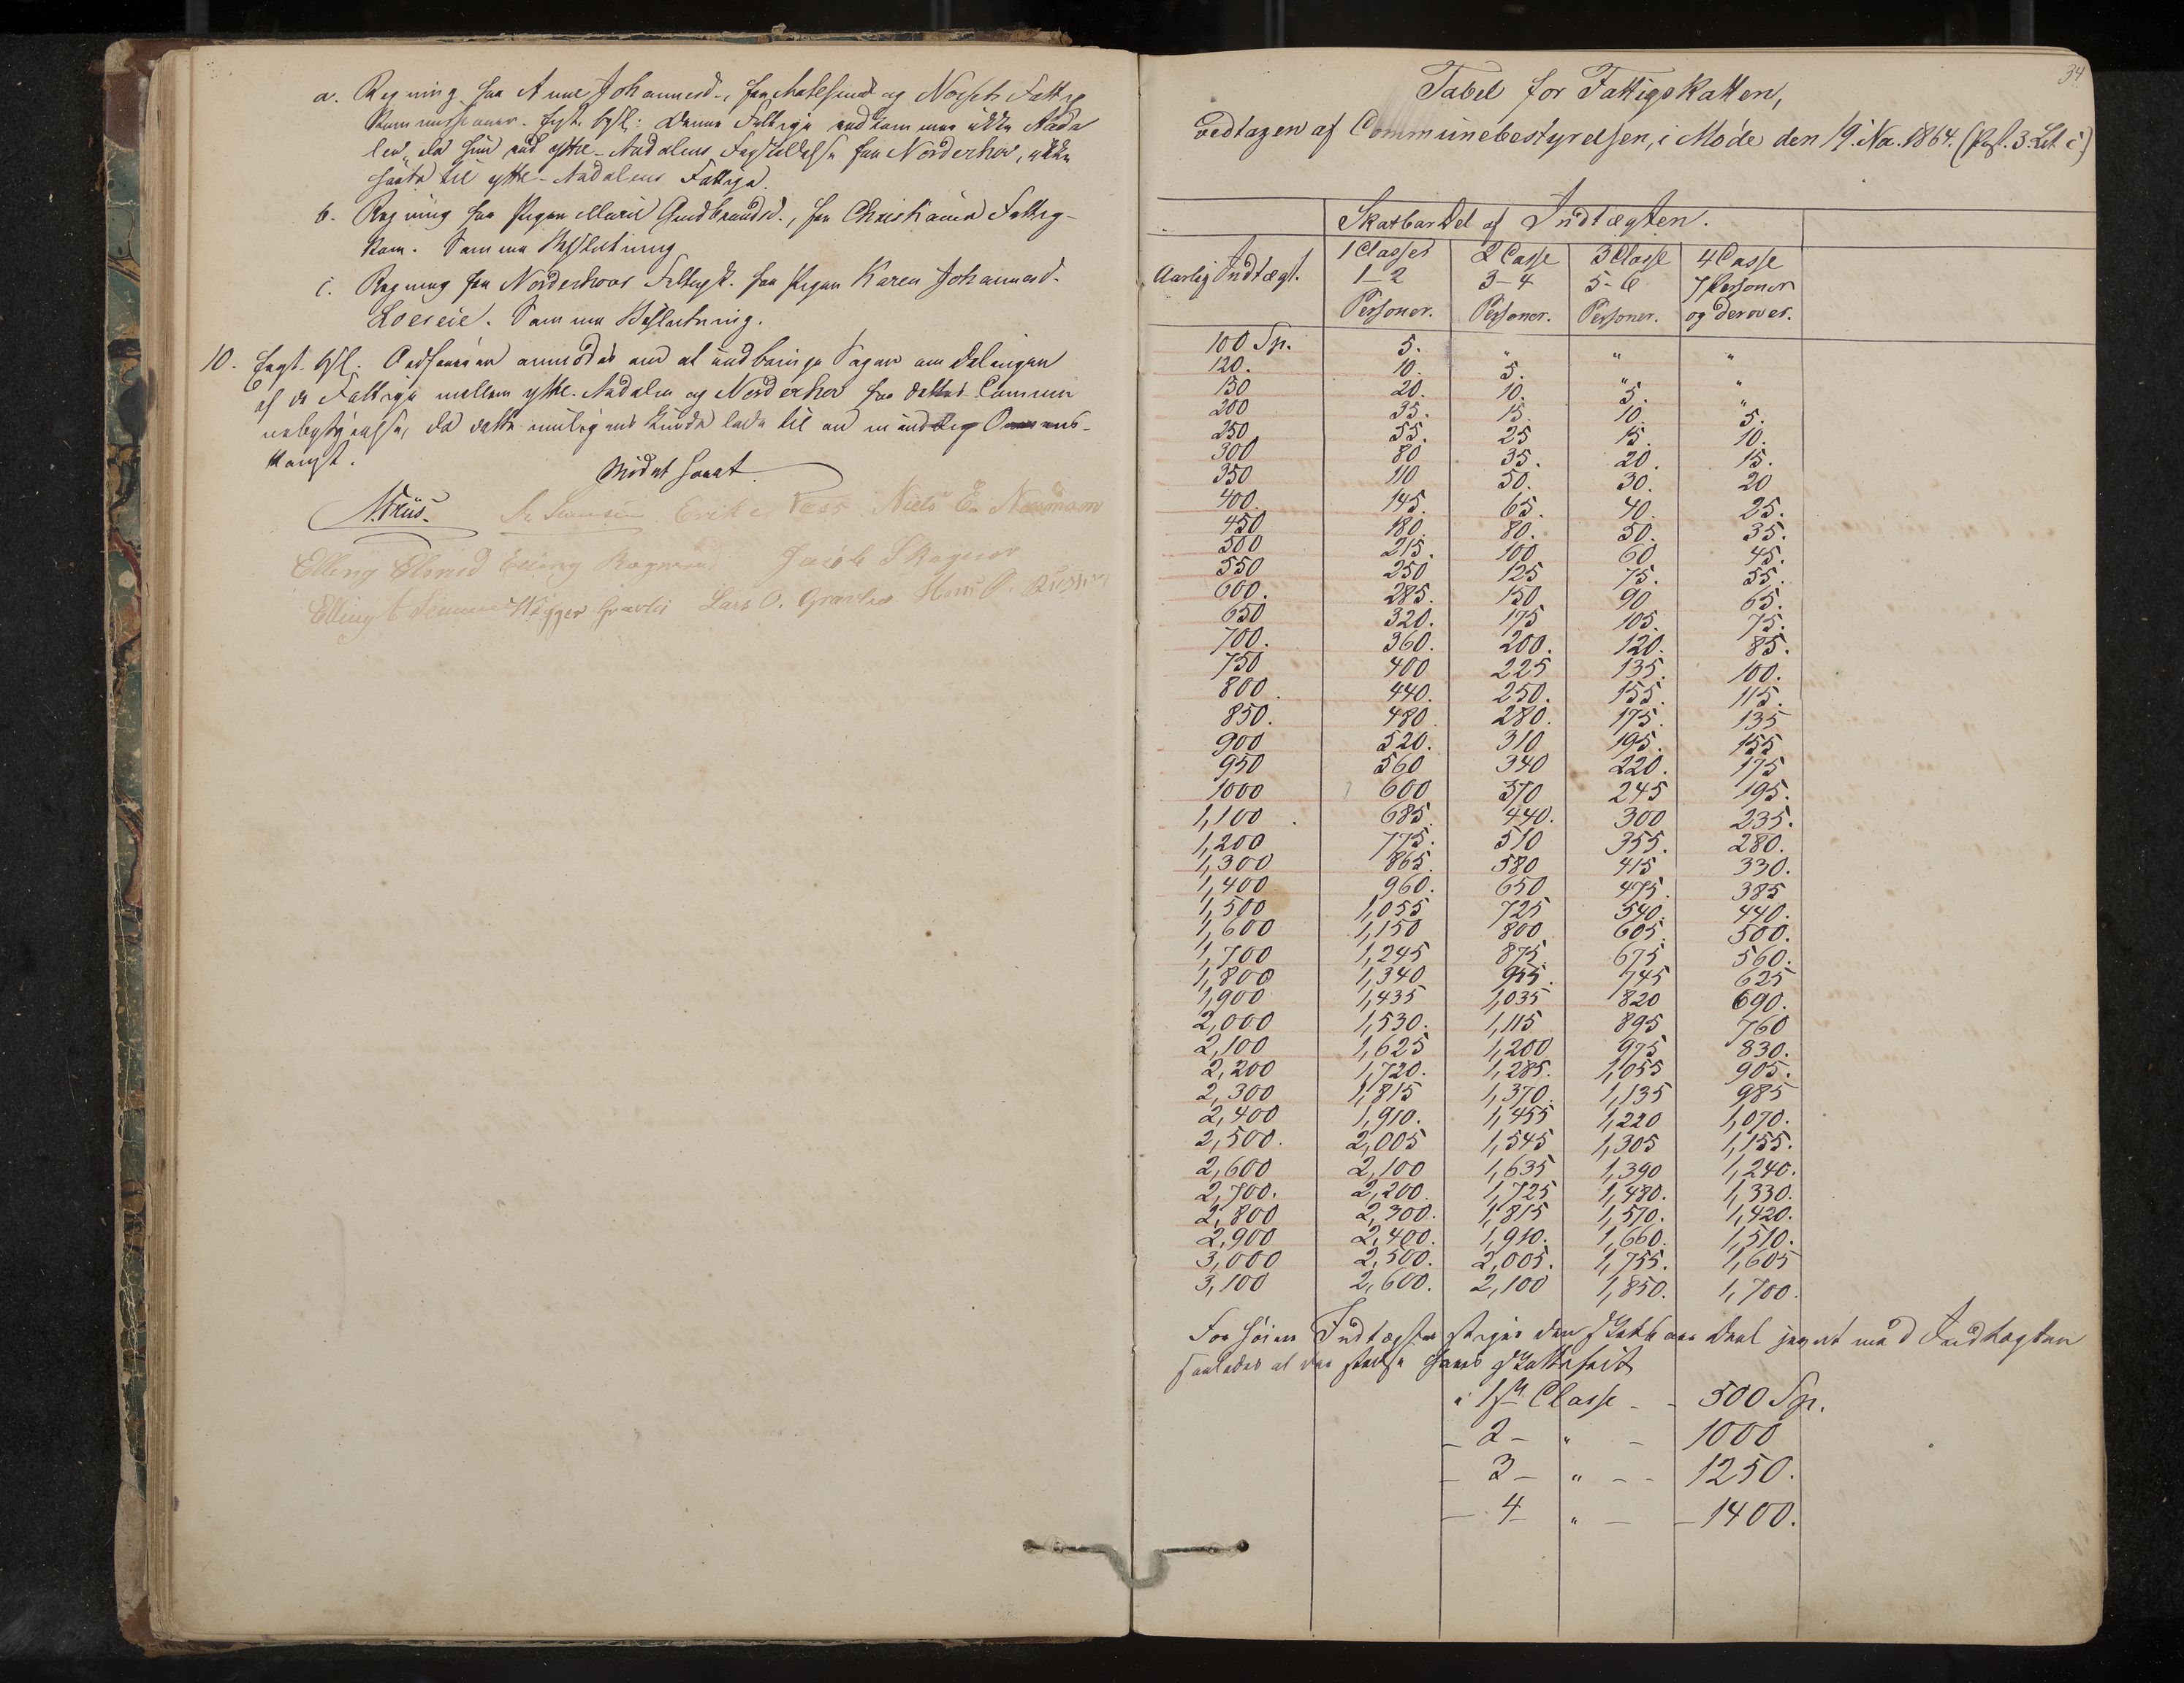 a. Regning fra Anne Johannesd., fra Modum og Næss Fattig
Kommissioner. Enst. besl: Denne Fattige vedkommer ikke Aada
len, da hun ved ytre-Aadalens Fraskillelse fra Norderhov, ikke
hørte til ytre-Aadalens Fattige.
b. Regning fra Pigen Marie Gudbrandsd., fra Christiania Fattig-
kom. Samme Beslutning
c. Regning fra Norderhovs Fattigk. fra Pigen Karen Johannesd.
Loeseie. Samme Beslutning.
10. Enst. besl. Ordføreren anmodes om at indbringe Sagen om Delingen
af de Fattige mellem ytre-Aadalen og Norderhov for dettes Commu
nebestyrelse, da dette muligens kunde lede til en mindelig Overens-
komst.
Mødet hævet
N. Friis. Erik Næss Niels E. Næsmoen
Elling Elsrud Elling Ragnrud Jacob Skagnæs
Elling E Semmen Vigger Gravli Lars O. Gravlie Hans O.
34
Tabel for Fattigskatten,
vedtagen af Communebestyrelsen, i Møde den 19. No. 1864. (Post. 3. Lit. c)
Skatbar Del af Indtægten.
Aarlig Indtægt. 1 Classes 2 Casse 3 Classe 4 Casse
1-2 3-4 5-6 7 Personer
Personer. Personer. Personer. og derover.
100 Sp. 5. " " "
120. 10. 5. " "
150 20. 10. 5. "
200 35. 15. 10. 5.
250 55. 25 15. 10.
300 80 35. 20. 15.
350 110 50. 30. 20
400. 145. 65. 40. 25.
450 180. 80. 50. 35.
500 215. 100 60 45.
550 250 125 75. 55.
600. 285. 150 90 65.
650 320. 175 105. 75.
700. 360. 200. 120. 85.
750 400 225 135. 100.
800. 440. 250. 155. 115.
850. 480. 280. 175. 135
900 520. 310 195. 155
950 560 340 220. 175
1000 600 370 245 195.
1,100. 685. 440. 300 235.
1,200 775. 510 355. 280.
1,300 865. 580 415 330.
1,400 960. 650 475. 385
1,500 1,055 725 540. 440.
1,600 1,150 800 605. 500.
1,700 1,245 875. 675 560.
1,800 1,340 955. 745 625
1,900 1,435 1,035 820 690.
2,000 1,530. 1,115 895 760
2,100 1,625 1,200 975 830.
2,200 1,720. 1,285. 1,055 905.
2,300 1,815 1,370. 1,135 985
2,400 1,910. 1,455 1,220 1,070.
2,500. 2,005 1,545 1,305 1,155.
2,600 2,100 1,635 1,390 1,240.
2,700. 2,200. 1,725 1,480. 1,330.
2,800 2,300. 1,815 1,570. 1,420.
2,900 2,400. 1,910. 1,660. 1,510.
3,000 2,500. 2,005. 1,755. 1,605
3,100 2,600. 2,100 1,850. 1,700.
For høiere Indtægter stiger den skatbare Deel jevnt med Indtægten
saaledes at den største
i 1ste Classe - - 500 Sp.
- 2 - " - 1000
- 3 - " - - 1250.
- 4 " - - 1400.